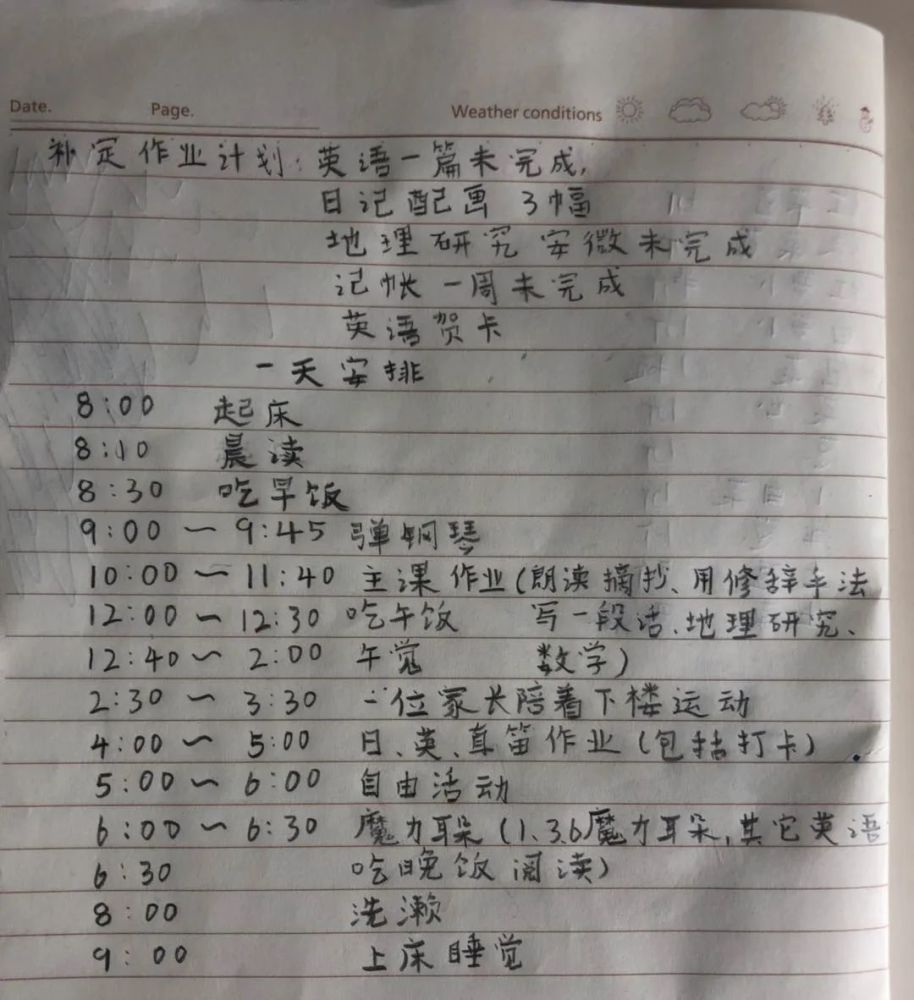 Date. Page. Weather conditions
补定作业计划:英语一篇未完成,
日记配画 3幅
地理研究安微未完成
记帐一周未完成
英语贺卡
一天安排
8:00 起床
8:10 晨读
8:30 吃早饭
9:00 ~ 9:45 弹钢琴
10:00 ~ 11:40 主课作业(朗读摘抄、用修辞手法
12:00 ~ 12:30 吃午饭 写一段话、地理研究、
12:40 ~ 2:00 午觉 数学)
2:30 ~ 3:30 一位家长陪着下楼运动
4:00 ~ 5:00 日、英、直笛作业(包括打卡).
5:00 ~ 6:00 自由活动
6:00 ~ 6:30 魔力耳朵(1.3.6魔力耳朵,其它英语
6:30 吃晚饭 阅读)
8:00 洗濑
9:00 上床睡觉